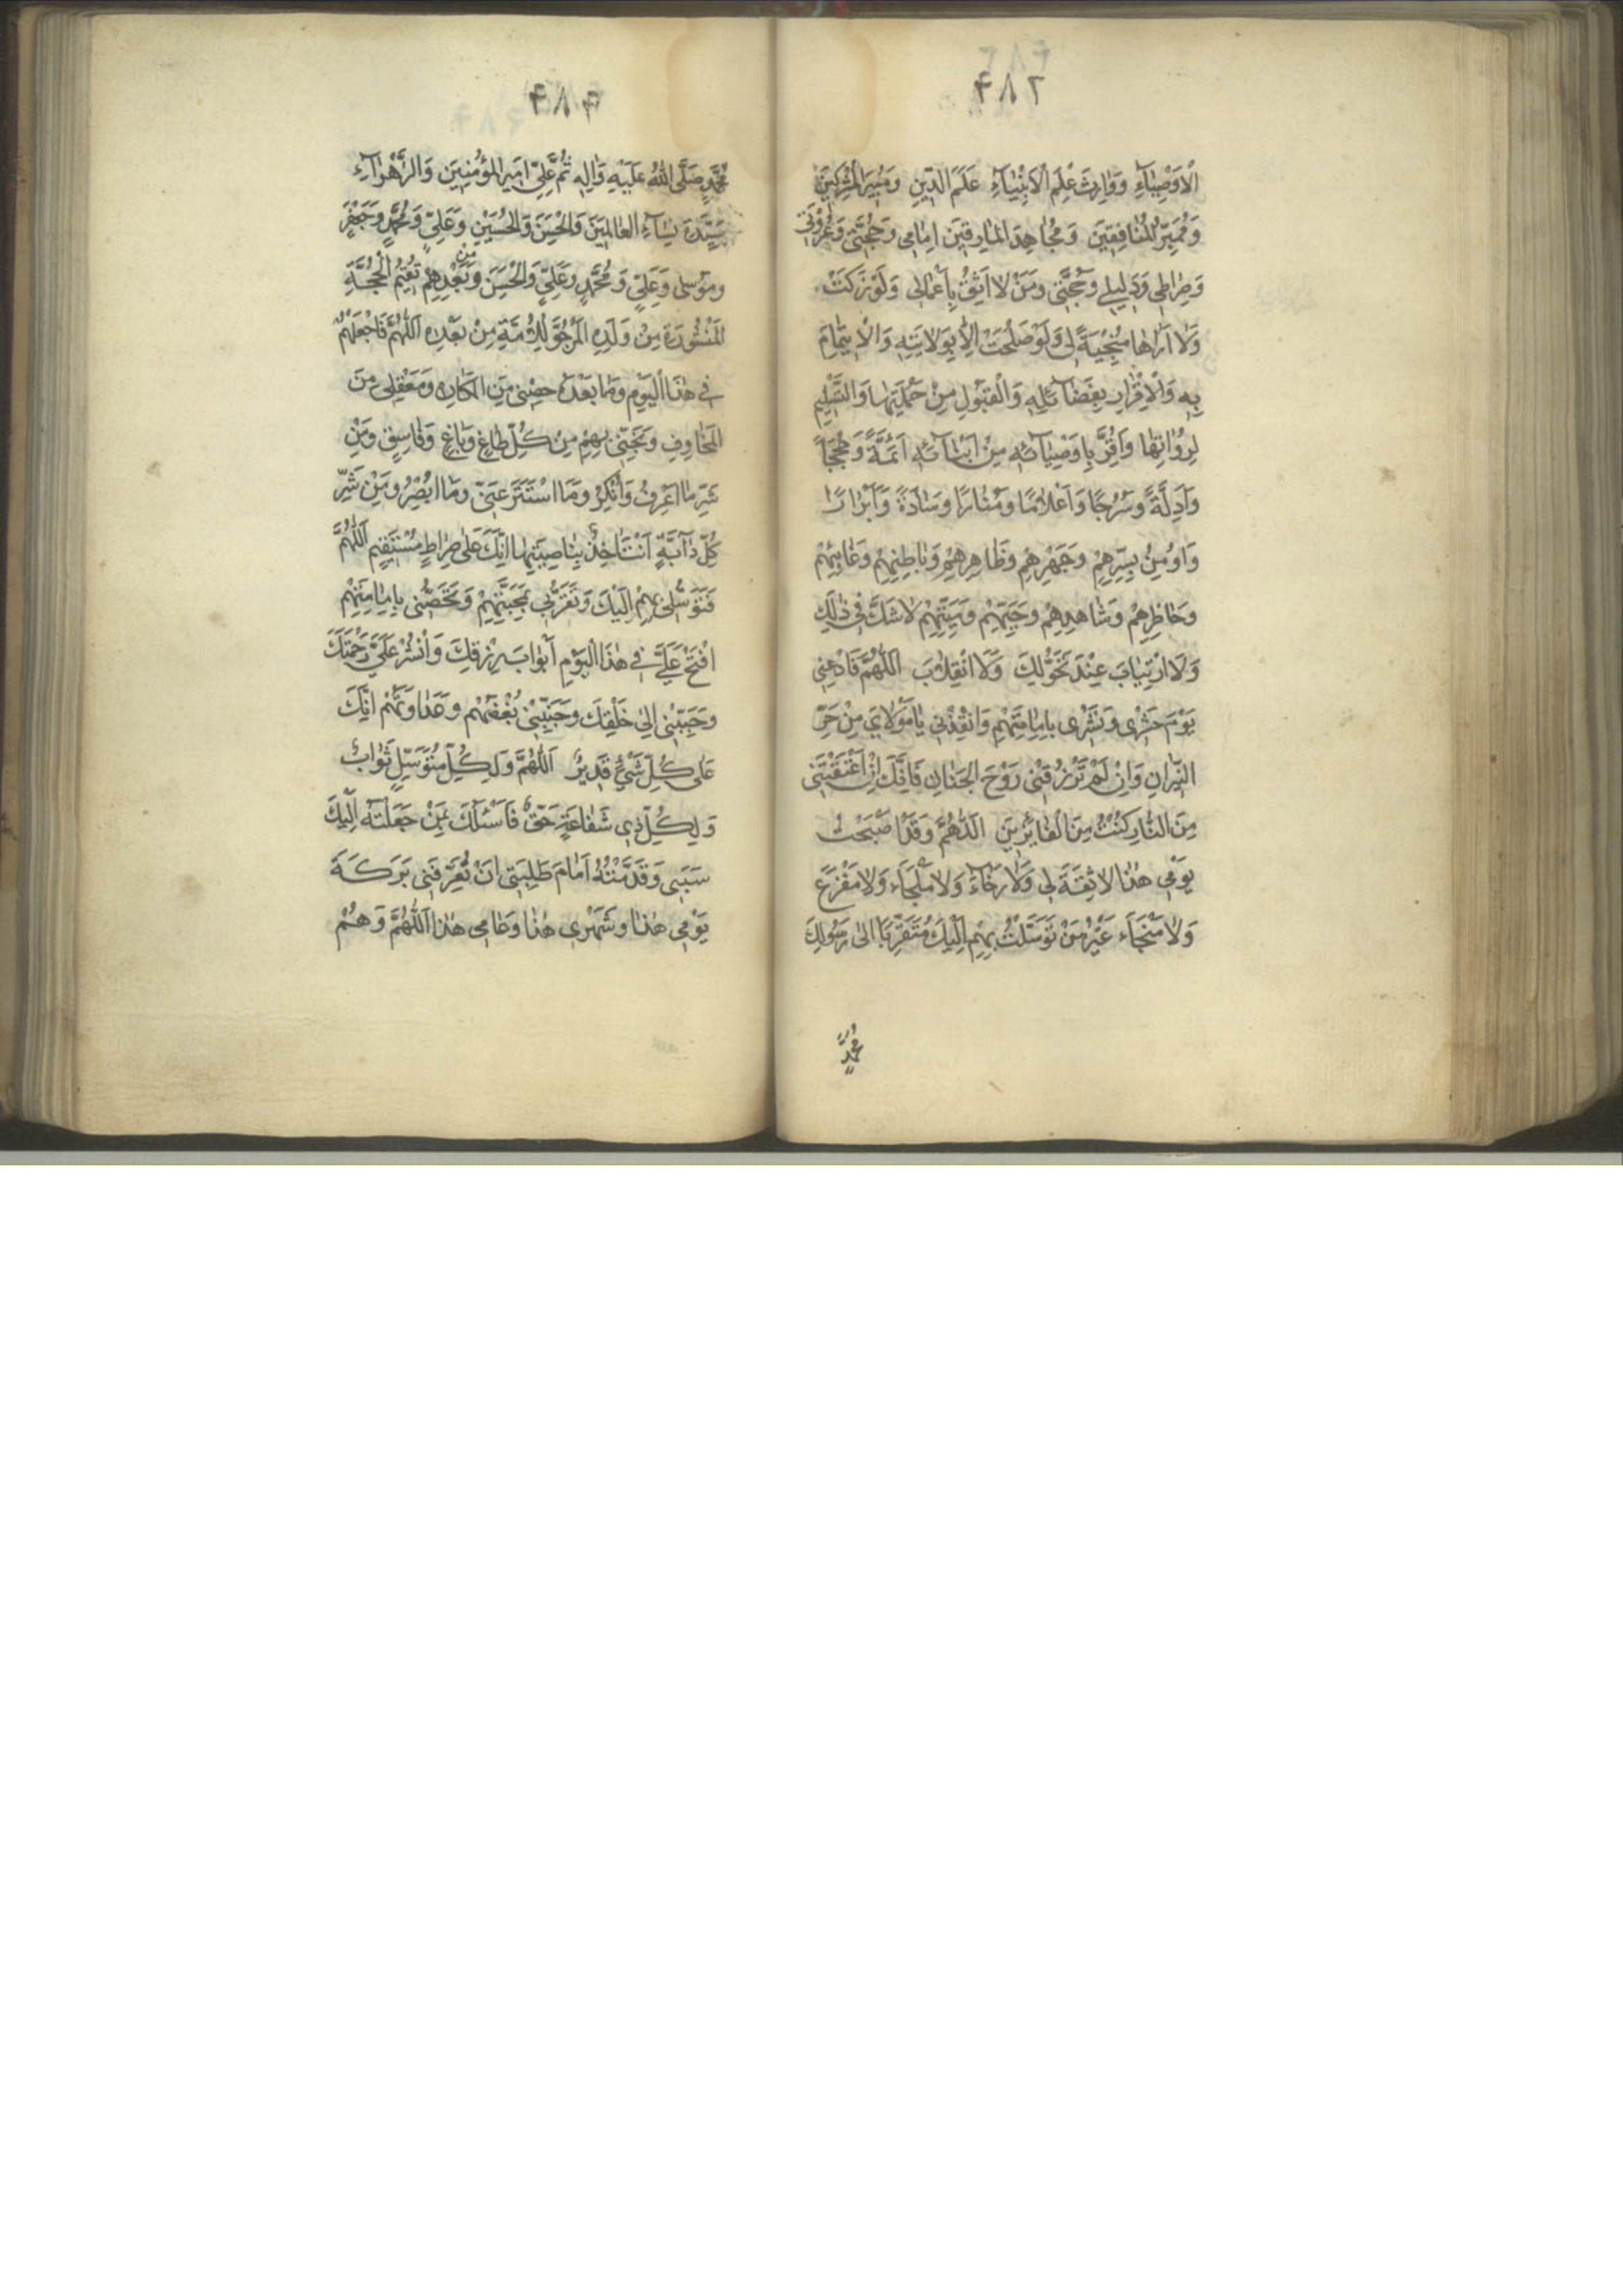 ۴۸۲
الْاَوْصِيٰآءِ وَوٰارِثَ عِلْمِ الْاَنْبِيٰآءِ عَلَمَ الدّينِ وَمُبيرَ الْمُشْرِكينَ
وَمُمَيِّزَ الْمُنٰافِقينَ وَمُجٰاهِدَ الْمٰارِقينَ اِمٰامى وَحُجَّتى وَعُرْوَتى
وَصِرٰاطى وَدَليلى وَحُجَّتى وَمَنْ لا اَثِقُ بِاَعْمٰالى وَلَوْ زَكَتْ
وَلا اَرٰاهٰا مُنْجِيَةً لى وَلَوْ صَلُحَتْ اِلّا بِوَلايَتِهِ وَالْايتِمٰامِ
بِهِ وَالْاِقْرٰارِ بِفَضٰآئِلِهِ وَالْقَبُولِ مِنْ حَمَلَتِهٰا وَالتَّسْليمِ
لِرُوٰاتِهٰا وَاُقِرُّ بِاَوْصِيٰآئِهِ مِنْ اَبْنٰآئِهِ اَئِمَّةً وَحُجَجاً
وَاَدِلَّةً وَسُرُجًا وَاَعْلامًا وَمَنٰارًا وَسٰادَةً وَاَبْرٰارًا
وَاُومِنُ بِسِرِّهِمْ وَجَهْرِهِمْ وَظٰاهِرِهِمْ وَبٰاطِنِهِمْ وَغٰائِبِهِمْ
وَحٰاظِرِهِمْ وَشٰاهِدِهِمْ وَحَيِّهِمْ وَمَيِّتِهِمْ لا شَكَّ فى ذٰلِكَ
وَلَا ارْتِيٰابَ عِنْدَ تَحَوُّلِكَ وَلَا انْقِلابَ اَللّٰهُمَّ فَادْعِنى
يَوْمَ حَشْرى وَنَشْرى بِاِمٰامَتِهِمْ وَانْقِذْنى يٰا مَوْلايَ مِنْ حَرِّ
النّيرٰانِ وَاِنْ لَمْ تَرْزُقْنى رَوْحَ الْجِنٰانِ فَاِنَّكَ اِنْ اَعْتَقْتَنى
مِنَ النّٰارِ كُنْتُ مِنَ الْفٰائِزينَ اَللّٰهُمَّ وَقَدْ اَصْبَحْتُ
يَوْمى هٰذٰا لا ثِقَةَ لى وَلا رَجٰاءَ وَلا مَلْجَاءَ وَلا مَفْزَعَ
وَلا مَنْجَاءَ غَيْرُ مَنْ تَوَسَّلْتُ بِهِمْ اِلَيْكَ مُتَقَرِّبًا اِلىٰ رَسُولِكَ
مُحَمَّدٍ
۴۸۴
مُحَمَّدٍ صَلَّى اللّٰهُ عَلَيْهِ وَاٰلِهِ ثُمَّ عَلِىٍّ اَميرِ الْمُؤْمِنينَ وَالزَّهْرٰآءِ
سَيِّدَةِ نِسٰآءِ الْعٰالَمينَ وَالْحَسَنِ وَالْحُسَيْنِ وَعَلِىٍّ وَمُحَمَّدٍ وَجَعْفَرٍ
وَمُوسٰى وَعَلِىٍّ وَمُحَمَّدٍ وَعَلِىٍّ وَالْحَسَنِ وَمَنْ بَعْدِهِمْ تُقيمُ الْحُجَّةَ
الْمَسْتُورَةَ مِنْ وَلَدِهِ الْمَرْجُوَّ لِلْاُمَّةِ مِنْ بَعْدِهِ اَللّٰهُمَّ فَاجْعَلْهُمْ
فى هٰذَا الْيَوْمِ وَمٰا بَعْدَهُ حِصْنى مِنَ الْمَكٰارِهِ وَمَعْقِلى مِنَ
الْمَخٰاوِفِ وَنَجِّنى بِهِمْ مِنْ كُلِّ طٰاغٍ وَبٰاغٍ وَفٰاسِقٍ وَمِنْ
شَرِّ مٰا اَعْرِفُ وَاُنْكِرُ وَمَا اسْتَتَرَ عَنّى وَمٰا اُبْصِرُ وَمِنْ شَرِّ
كُلِّ دٰآبَّةٍ اَنْتَ اٰخِذٌ بِنٰاصِيَتِهٰا اِنَّكَ عَلىٰ صِرٰاطٍ مُسْتَقيمٍ اَللّٰهُمَّ
فَتَوَسُّلى بِهِمْ اِلَيْكَ وَتَقَرُّبى بِمَحَبَّتِهِمْ وَتَحَصُّنى بِاِمٰامَتِهِمْ
افْتَحْ عَلَىَّ فى هٰذَا الْيَوْمِ اَبْوٰابَ رِزْقِكَ وَانْشُرْ عَلَىَّ رَحْمَتَكَ
وَحَبِّبْنى اِلىٰ خَلْقِكَ وَجَنِّبْنى بُغْضَهُمْ وَعَدٰاوَتَهُمْ اِنَّكَ
عَلىٰ كُلِّ شَىْءٍ قَديرٌ اَللّٰهُمَّ وَلِكُلِّ مُتَوَسِّلٍ ثَوٰابٌ
وَلِكُلِّ ذى شَفٰاعَةٍ حَقٌّ فَاَسْئَلُكَ بِمَنْ جَعَلْتَهُ اِلَيْكَ
سَبَبى وَقَدَّمْتُهُ اَمٰامَ طَلِبَتى اَنْ تُعَرِّفَنى بَرَكَةَ
يَوْمى هٰذٰا وَشَهْرى هٰذٰا وَعٰامى هٰذٰا اَللّٰهُمَّ وَهُمْ